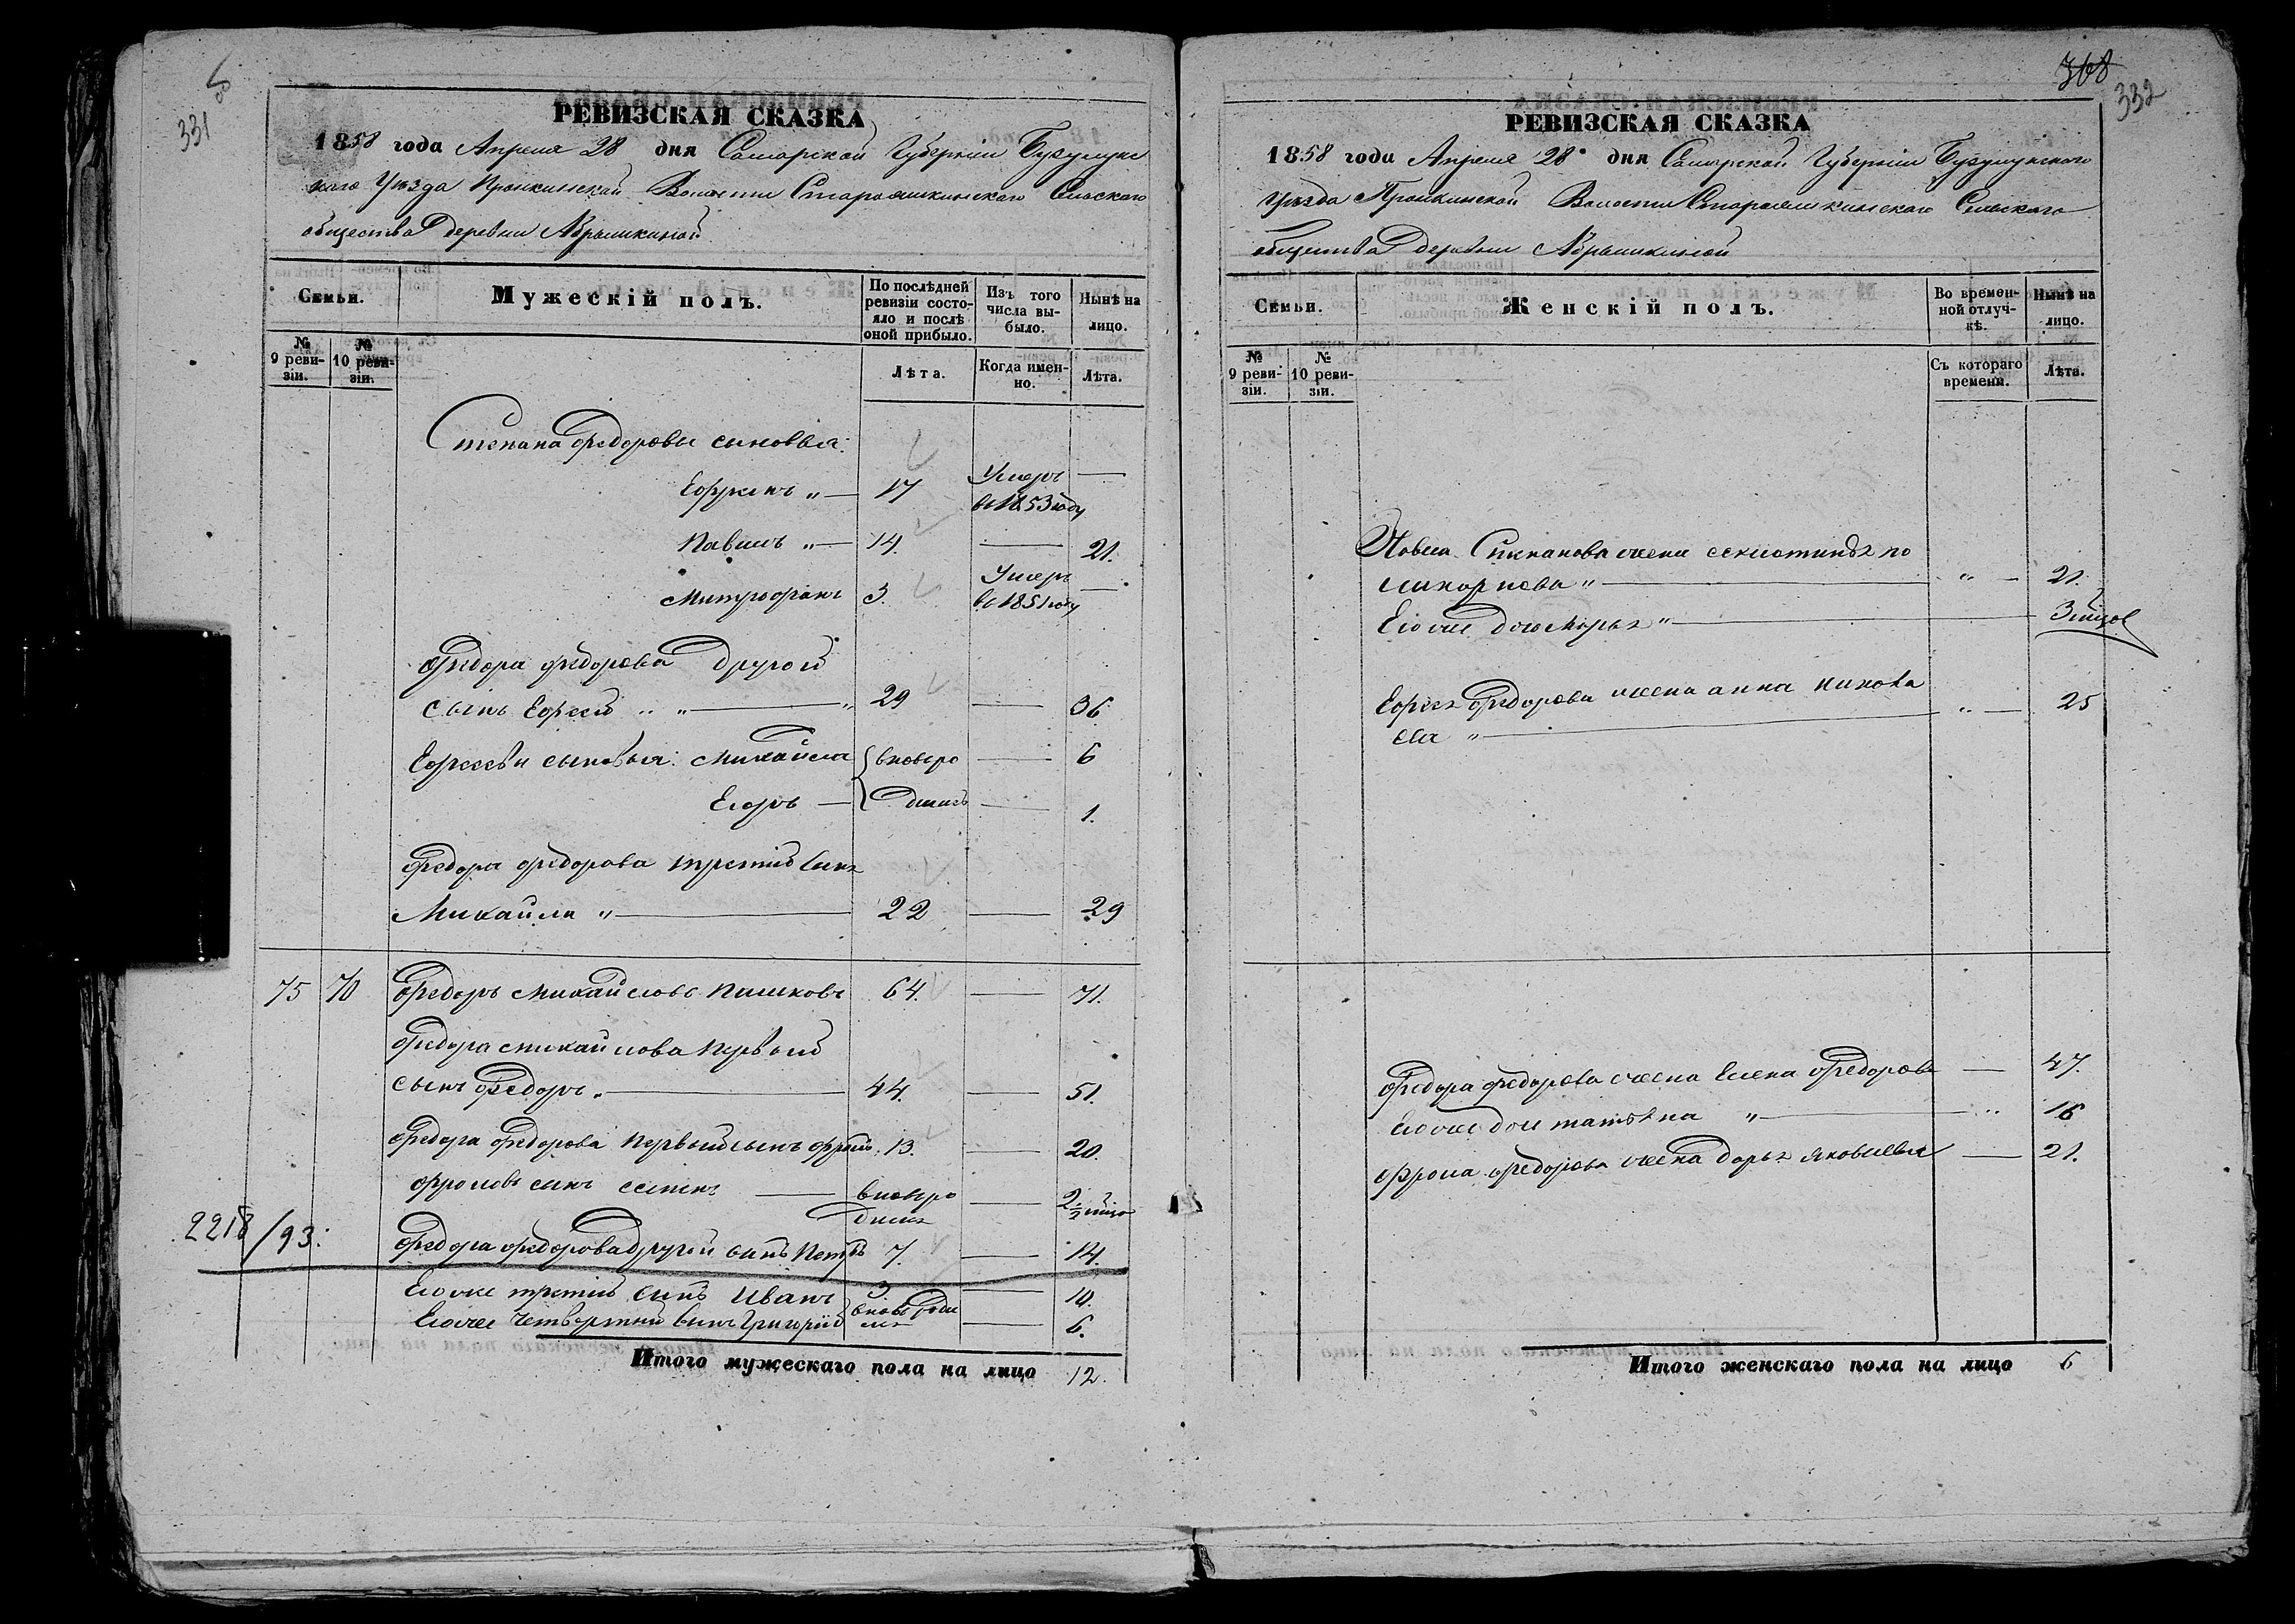 331
РЕВИЗСКАЯ СКАЗКА
1858 года Апреля 28 дня Самарской Губерніи Бузулукс
каго Уѣзда Пронкинской Волости Сельскаго
общества Деревни
Семьи.
Мужескій полъ.
По послѣдней ревизіи состояло и послѣ оной прибыло.
Изъ того числа выбыло.
Нынѣ на лицо.
№ 9 ревизіи.
№ 10 ревизіи.
Лѣта.
Когда именно.
Лѣта.
Степана Федорова сыновья:
Ефремъ " — 17 Умеръ в 1853 году —
Павелъ " — 14. — 21.
Митрофанъ 3. Умеръ в 1851 году —
Федора Федорова Другой
сынъ " — " 29 — 36
сыновья: Михайла вновь ро — 6
Егоръ — дились — 1.
Федора Федорова третій сынъ
Михайла " — 22 — 29
75 70 Федоръ Михайловъ 64. — 71.
Федора Михайлова первый
сынъ Федоръ " — 44. — 51.
Федора Федорова первый сынъ Фролъ 13. — 20.
Фроловъ сынъ — вновь ро — 2
дился
2218/93.
Федора Федорова другой сынъ Петръ 7. — 14.
Его же третій сынъ Иванъ 3 — 10.
Его же четвертый сынъ Григорій вновь роди — 6.
лся
Итого мужескаго пола на лицо 12.
368
332
РЕВИЗСКАЯ СКАЗКА
1858 года Апреля 28 дня Самарской Губерніи Бузулукского
Уѣзда Пронкинской Волости Сельскаго
общества Деревни
Семьи.
Женскій полъ.
Во временной отлучкѣ.
Нынѣ на лицо.
№ 9 ревизіи.
№ 10 ревизіи.
Съ котораго времени.
Лѣта.
Павла Степанова жена
" — " — 21.
Его же дочь Марья " — 3
Федорова жена Анна
" — " — 25
Федора Федорова жена Елена Федорова — 47.
Его же дочь Татьяна " — " 16
Фрола Федорова жена Дарья Яковлева — 21.
Итого женскаго пола на лицо 6